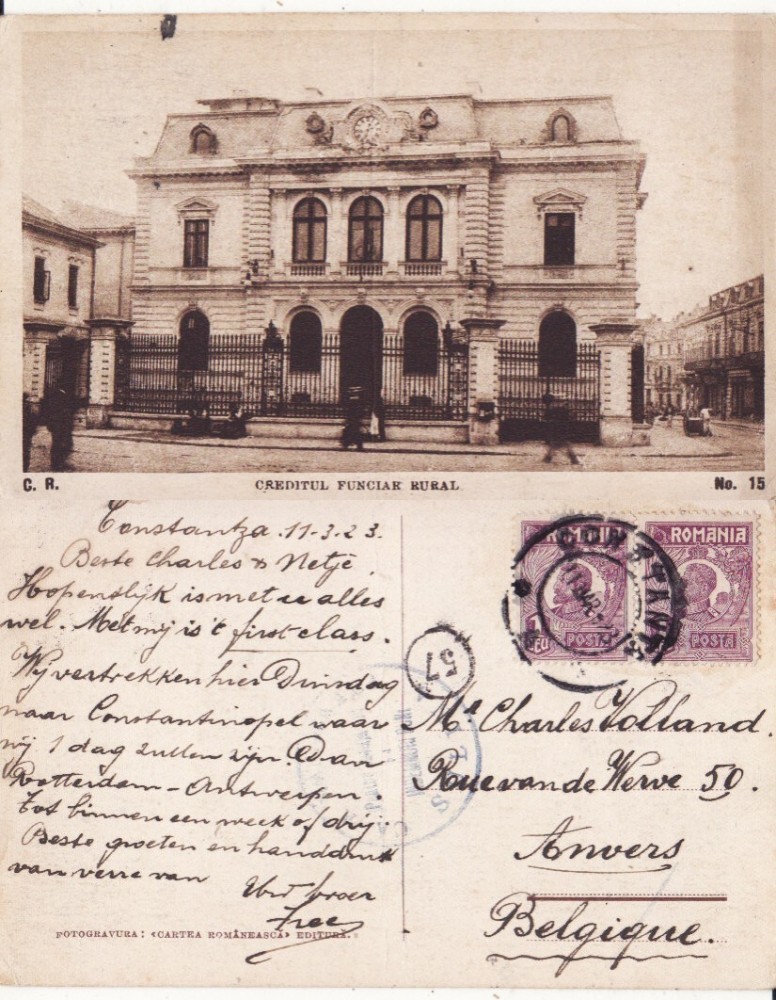 C. R.
CREDITUL FUNCIAR RURAL
No. 15
Constantza. 11-3-23.
Beste Charles & Netje.
Hopenslijk is met u alles
wel. Met mij is 't first class.
Wij vertrekken hier Dinsdag
naar Constantinopel waar
wij 1 dag zullen zijn. Dan
Rotterdam - Antwerpen.
Tot binnen een week of drij.
Beste groeten en handdruk
van verre van
Uw broer
FOTOGRAVURA: «CARTEA ROMÂNEASCĂ» EDITURA.
ROMANIA
1
LEU
POSTA
ROMANIA
POSTA
CONSTANȚA
57
Mr Charles Volland.
Rue van de Werve 50.
Anvers
Belgique.